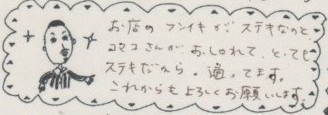 お店のフンイキがステキなのと
ロセコさんがおしゃれで、とても
ステキだから。通ってます。
これからもよろしくお願いします。